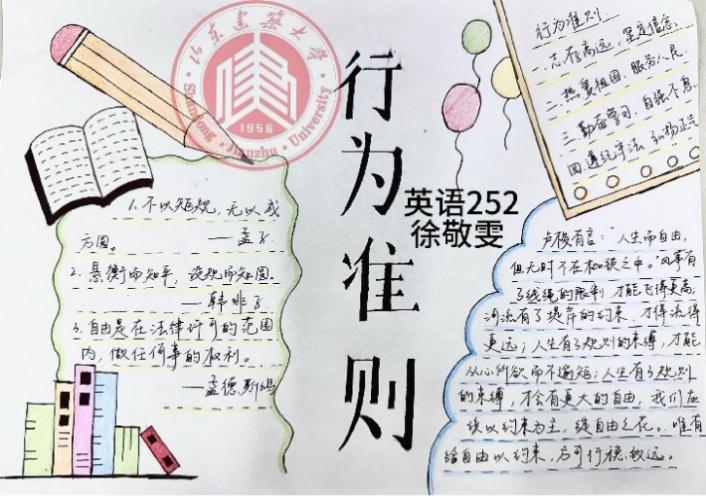 山东建筑大学
Shandong Jianzhu University
1956
行为准则
英语252
徐敬雯
1.不以规矩，无以成
方圆。
——孟子
2.悬衡而知平，设规而知圆。
——韩非子
3.自由是在法律许可的范围
内，做任何事的权利。
——孟德斯鸠
行为准则
一.志存高远，坚定信念
二.热爱祖国，服务人民
三.勤奋学习，自强不息
四.遵纪守法，弘扬正气
卢梭有言：“人生而自由，
但无时不在枷锁之中。”风筝有
了线绳的限制，才能飞得更高；
河流有了堤岸的约束，才得流得
更远；人生有了规则的束缚，才能
从心所欲而不逾矩；人生有了规则
的束缚，才会有更大的自由，我们应
续以约束为主，绽自由之花。唯有
给自由以约束，后可行稳致远。